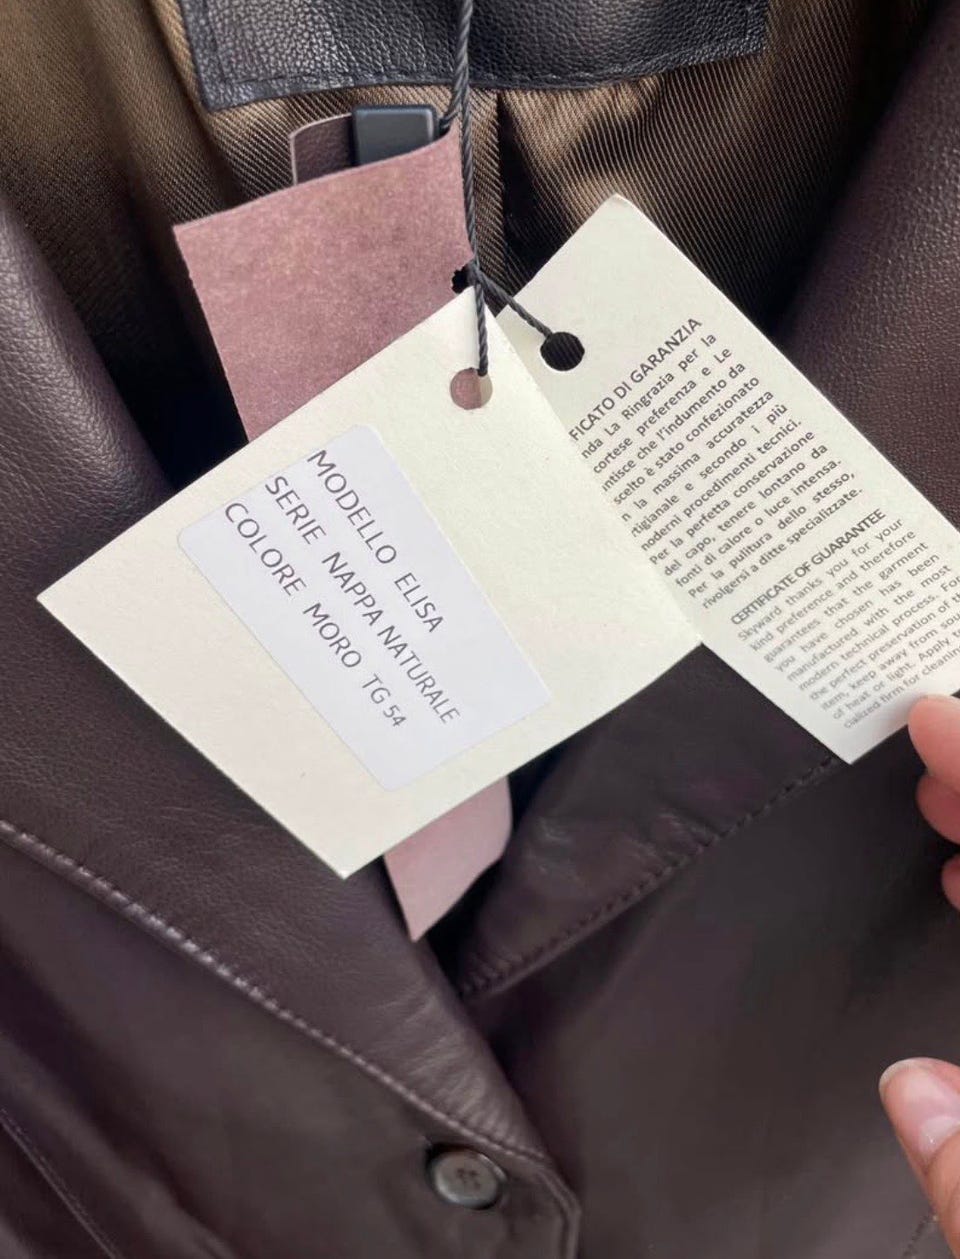 MODELLO ELISA
SERIE NAPPA NATURALE
COLORE MORO TG 54
FICATO DI GARANZIA
nda La Ringrazia per la
cortese preferenza e Le
ntisce che l'indumento da
scelto è stato confezionato
n la massima accuratezza
rtigianale e secondo i più
moderni procedimenti tecnici.
Per la perfetta conservazione
del capo, tenere lontano da
fonti di calore o luce intensa.
Per la pulitura dello stesso,
rivolgersi a ditte specializzate.
CERTIFICATE OF GUARANTEE
Skyward thanks you for your
kind preference and therefore
guarantees that the garment
you have chosen has been
manufactured with the most
modern technical process. For
the perfect preservation of th
item, keep away from sou
of heat or light. Apply to
cialized firm for cleaning